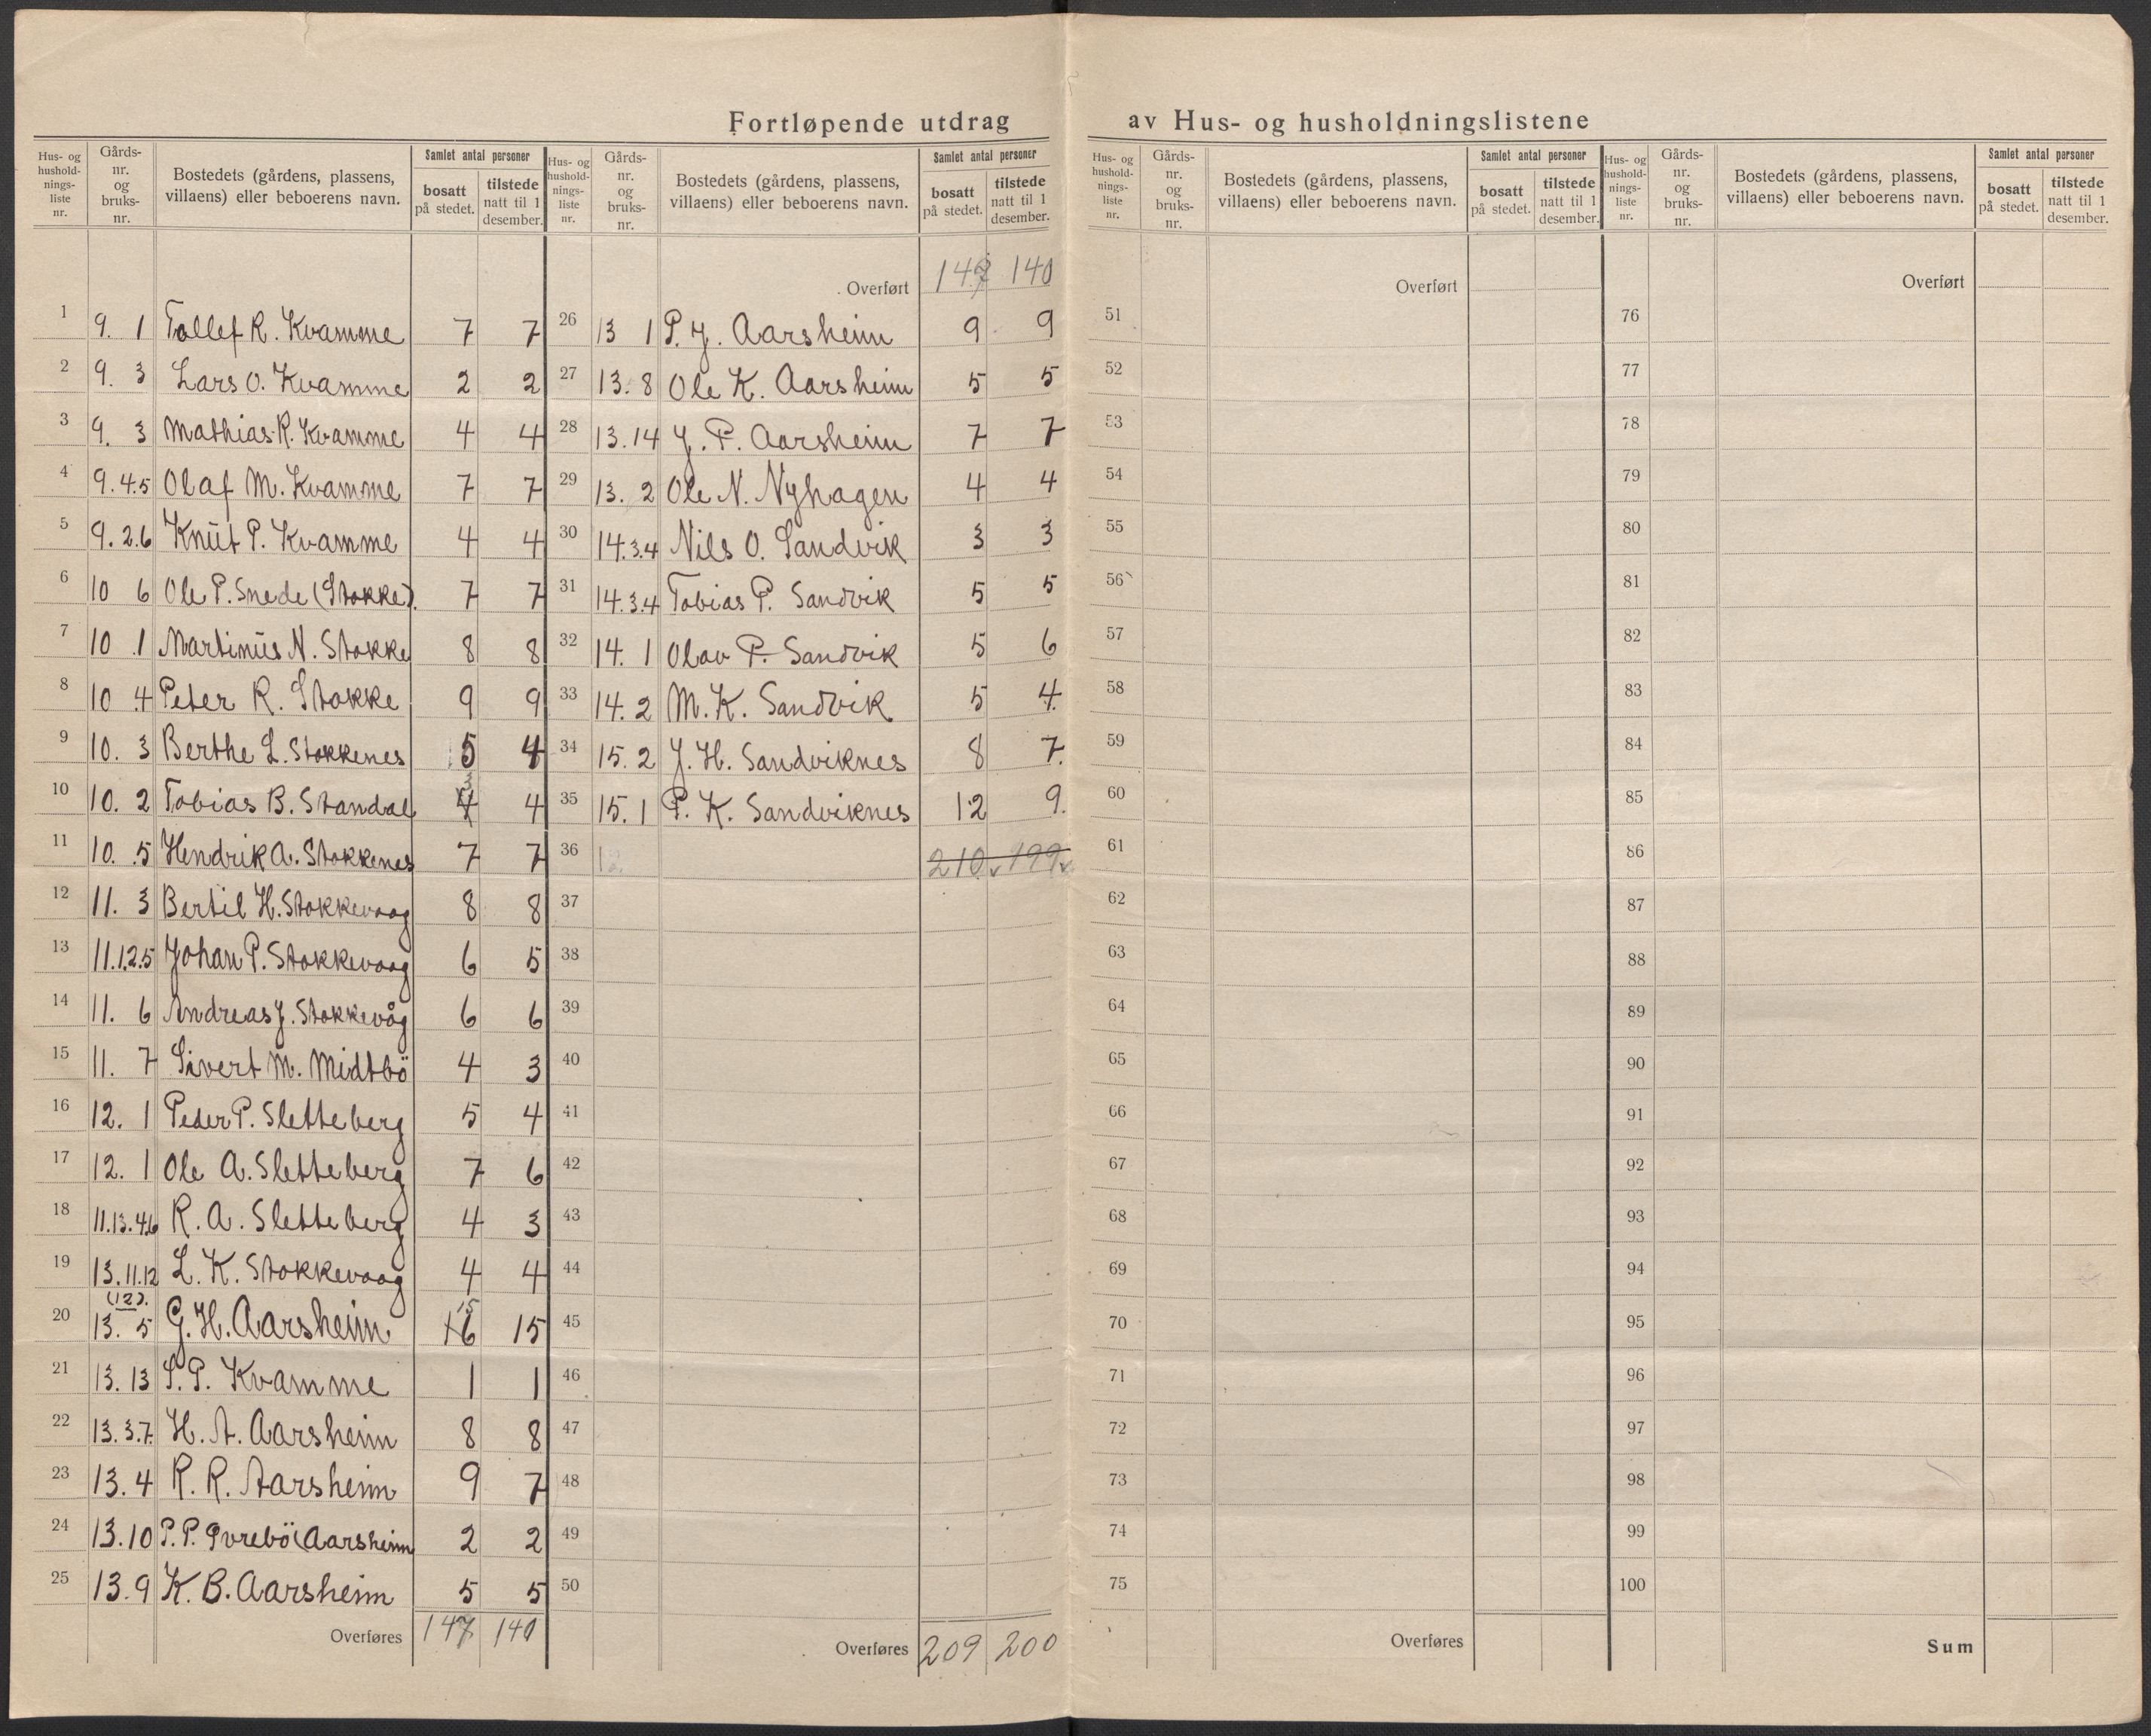 Fortløpende utdrag av Hus- og husholdningslistene
Hus- og hushold-nings-liste nr. | Gårds-nr. og bruks-nr. | Bostedets (gårdens, plassens, villaens) eller beboerens navn. | Samlet antal personer | bosatt på stedet. | tilstede natt til 1 desember.
1 9. 1 Tollef R. Kvamme 7 7
2 9. 3 Lars O. Kvamme 2 2
3 9. 3 Mathias R. Kvamme 4 4
4 9.4.5 Olaf M. Kvamme 7 7
5 9.2.6 Knut P. Kvamme 4 4
6 10 6 Ole P. Snede (Stokke). 7 7
7 10 1 Martinus N. Stokke 8 8
8 10 4 Peter R. Stokke 9 9
9 10. 3 Berthe L. Stokkenes 5 4
10 10. 2 Tobias B. Standal 4 3 4
11 10. 5 Hendrik A. Stokkenes 7 7
12 11. 3 Bertil H. Stokkevaag 8 8
13 11.1.2.5 Johan P. Stokkevaag 6 5
14 11. 6 Andreas J. Stokkevåg 6 6
15 11. 7 Sivert M. Midtbö 4 3
16 12. 1 Peder P. Sletteberg 5 4
17 12. 1 Ole A. Sletteberg 7 6
18 11.13.4.6 R. A. Sletteberg 4 3
19 13.11.12 L. K. Stokkevaag 4 4
20 (12). 13. 5 G. H. Aarsheim 16 15 15
21 13. 13 S. P. Kvamme 1 1
22 13.3.7. H. A. Aarsheim 8 8
23 13. 4 R. R. Aarsheim 9 7
24 13.10 P. P. Övrebö (Aarsheim 2 2
25 13.9 K. B. Aarsheim 5 5
Overføres 147 140
Hus- og hushold-nings-liste nr. | Gårds-nr. og bruks-nr. | Bostedets (gårdens, plassens, villaens) eller beboerens navn. | Samlet antal personer | bosatt på stedet. | tilstede natt til 1 desember.
Overført 147 140
26 13 1 P. J. Aarsheim 9 9
27 13. 8 Ole K. Aarsheim 5 5
28 13.14 J. P. Aarsheim 7 7
29 13. 2 Ole N. Nyhagen 4 4
30 14.3.4 Nils O. Sandvik 3 3
31 14.3.4 Tobias P. Sandvik 5 5
32 14. 1 Olav P. Sandvik 5 6
33 14. 2 M. K. Sandvik 5 4.
34 15. 2 J. H. Sandviknes 8 7.
35 15. 1 P. K. Sandviknes 12 9.
36 210 199
37
38
39
40
41
42
43
44
45
46
47
48
49
50
Overføres 209 200
Hus- og hushold-nings-liste nr. | Gårds-nr. og bruks-nr. | Bostedets (gårdens, plassens, villaens) eller beboerens navn. | Samlet antal personer | bosatt på stedet. | tilstede natt til 1 desember.
Overført
51
52
53
54
55
56
57
58
59
60
61
62
63
64
65
66
67
68
69
70
71
72
73
74
75
Overføres
Hus- og hushold-nings-liste nr. | Gårds-nr. og bruks-nr. | Bostedets (gårdens, plassens, villaens) eller beboerens navn. | Samlet antal personer | bosatt på stedet. | tilstede natt til 1 desember.
Overført
76
77
78
79
80
81
82
83
84
85
86
87
88
89
90
91
92
93
94
95
96
97
98
99
100
Sum